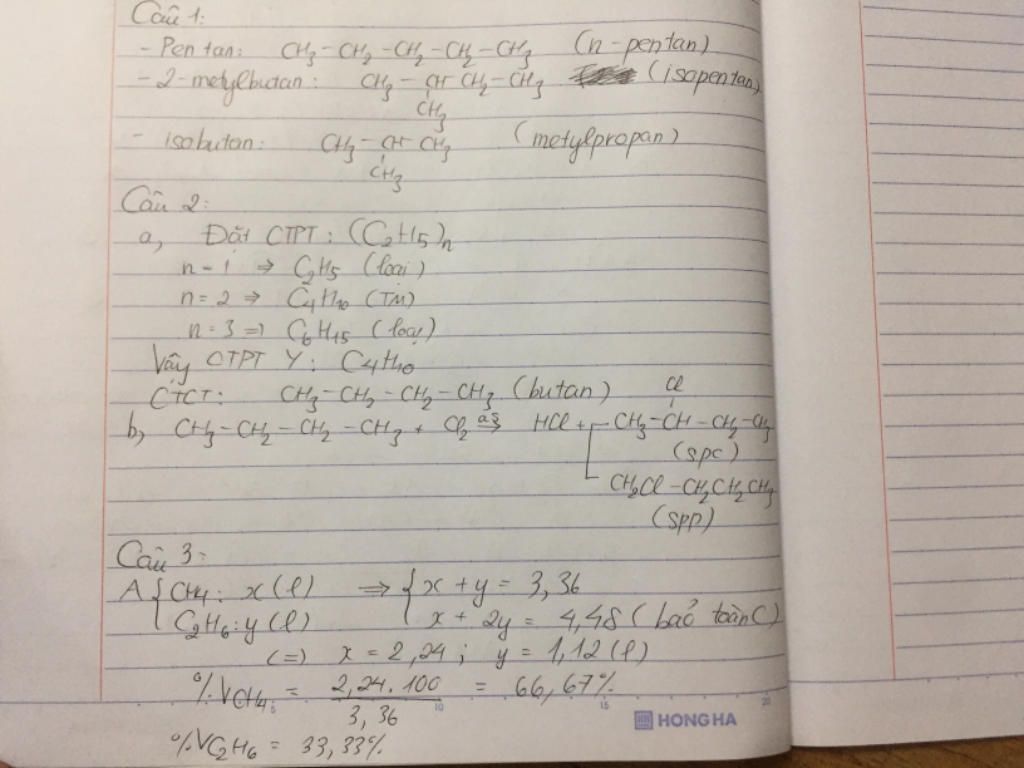 Câu 1:
- Pentan: CH3 - CH2 - CH2 - CH2 - CH3 (n-pentan)
- 2-metylbutan: CH3 - CH CH2 - CH3 (isopentan)
CH3
- isobutan: CH3 - CH CH3 (metylpropan)
CH3
Câu 2:
a, Đặt CTPT: (C2H5)n
n = 1 => C2H5 (loại)
n = 2 => C4H10 (TM)
n = 3 => C6H15 (loại)
Vậy CTPT Y: C4H10
CTCT: CH3 - CH2 - CH2 - CH3 (butan)
Cl
b, CH3 - CH2 - CH2 - CH3 + Cl2 as→ HCl + CH3 - CH - CH2 - CH3
(spc)
CH2Cl - CH2CH2CH3
(spp)
Câu 3:
A { CH4: x (l) => { x + y = 3,36
C2H6: y (l) x + 2y = 4,48 (bảo toàn C)
(=) x = 2,24; y = 1,12 (l)
%VCH4 = 2,24.100 / 3,36 = 66,67%
5 10 15 20
HONG HA
%VC2H6 = 33,33%